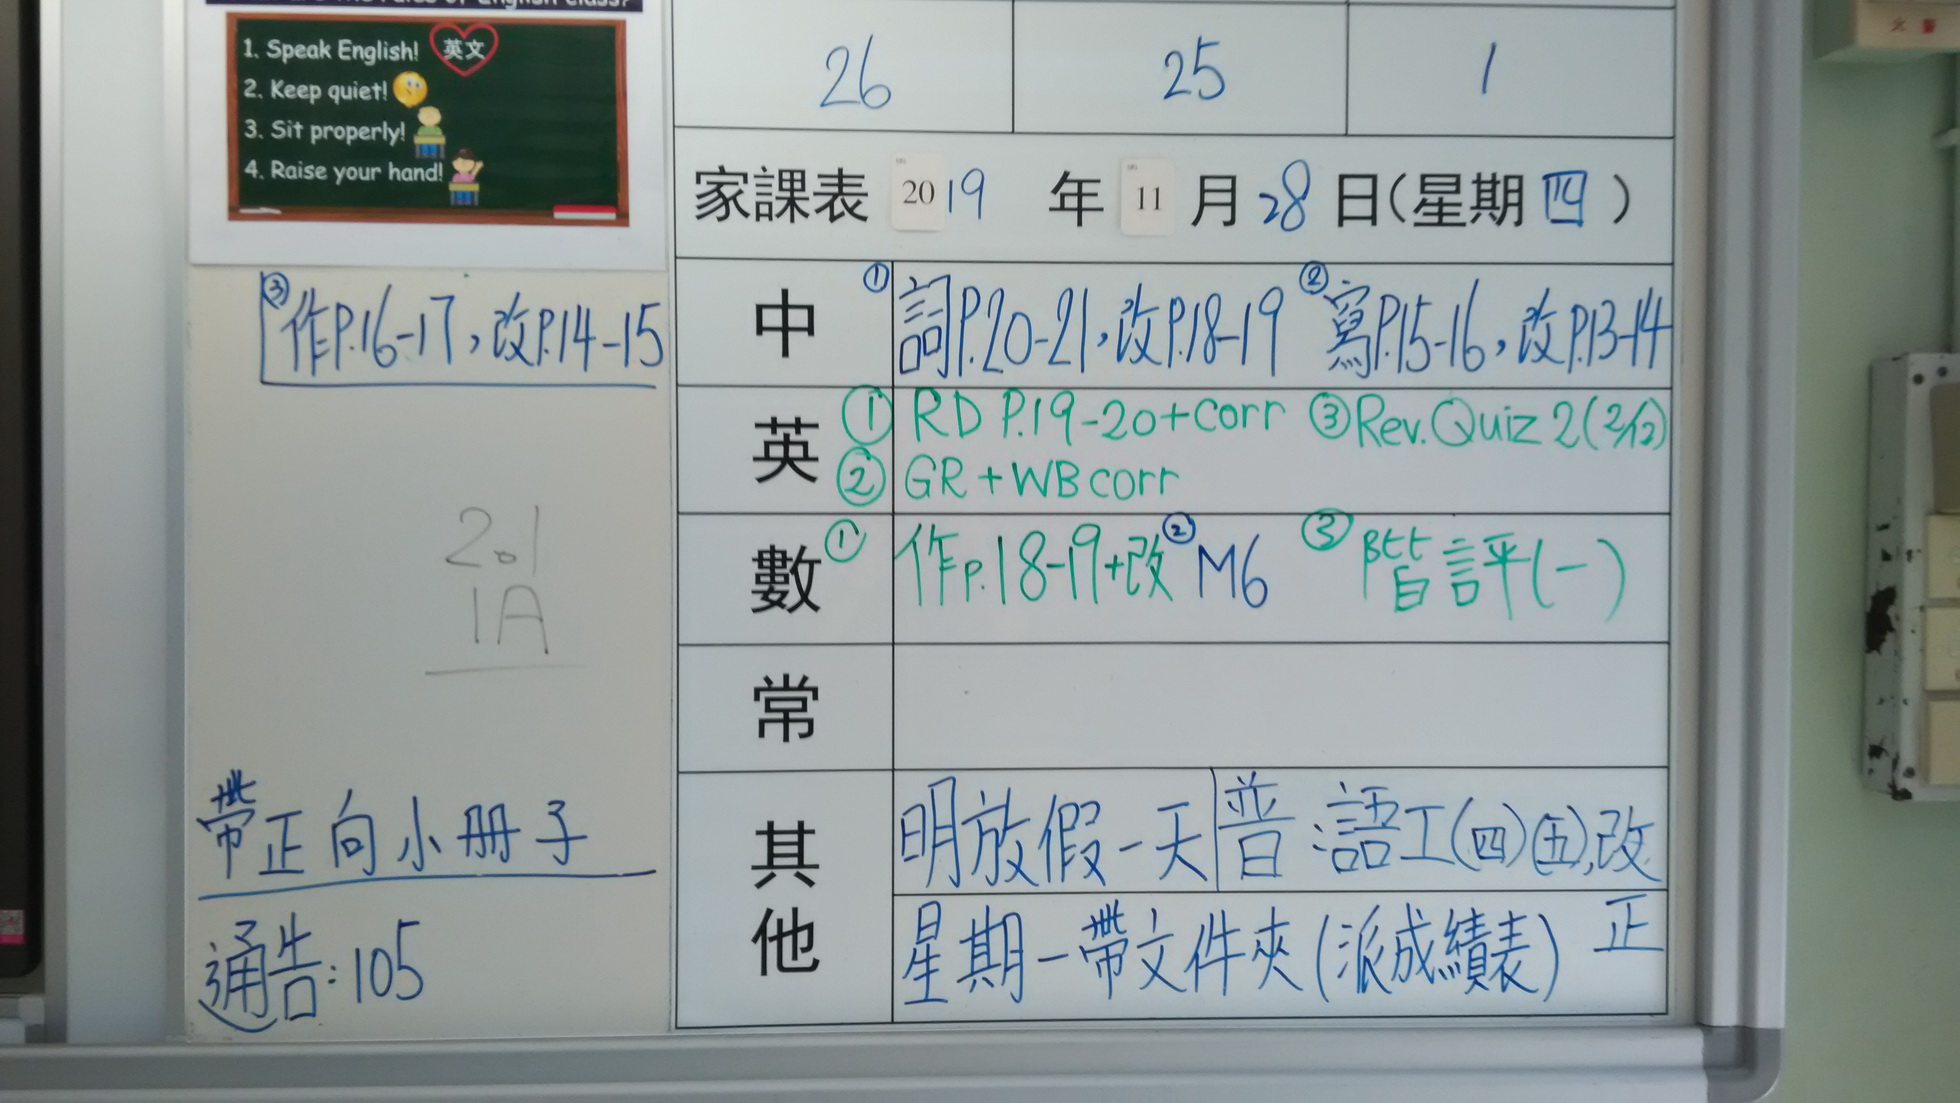 1. Speak English! 英文
2. Keep quiet!
3. Sit properly!
4. Raise your hand!
26 25 1
家課表 2019 年 11 月 28 日(星期四)
③作P.16-17,改P.14-15
中 ①詞P.20-21,改P.18-19 ②寫P.15-16,改P.13-14
英 ① RD P.19-20+corr ③Rev.Quiz 2(2/12)
② GR+WB corr
數 ① 作p.18-19+改 ②M6 ③階評(一)
2.1
1A
常
其他
明放假一天|普 語工(四)(五),改正
星期一帶文件夾(派成績表)
帶正向小冊子
通告:105